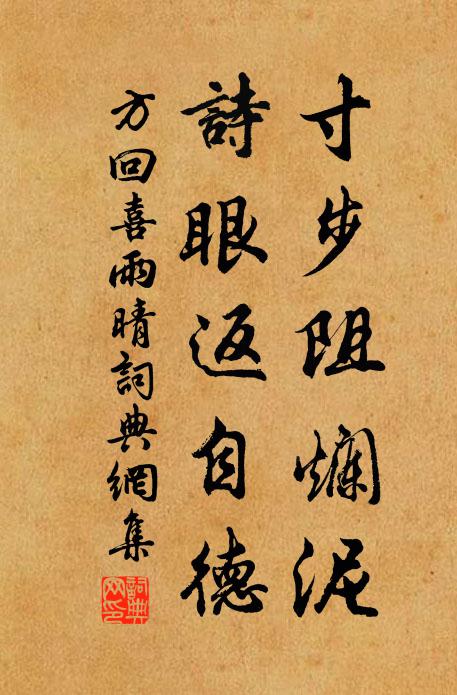 寸步阻爛泥
詩眼返自德
方回喜雨晴詞典網集
詞典網印